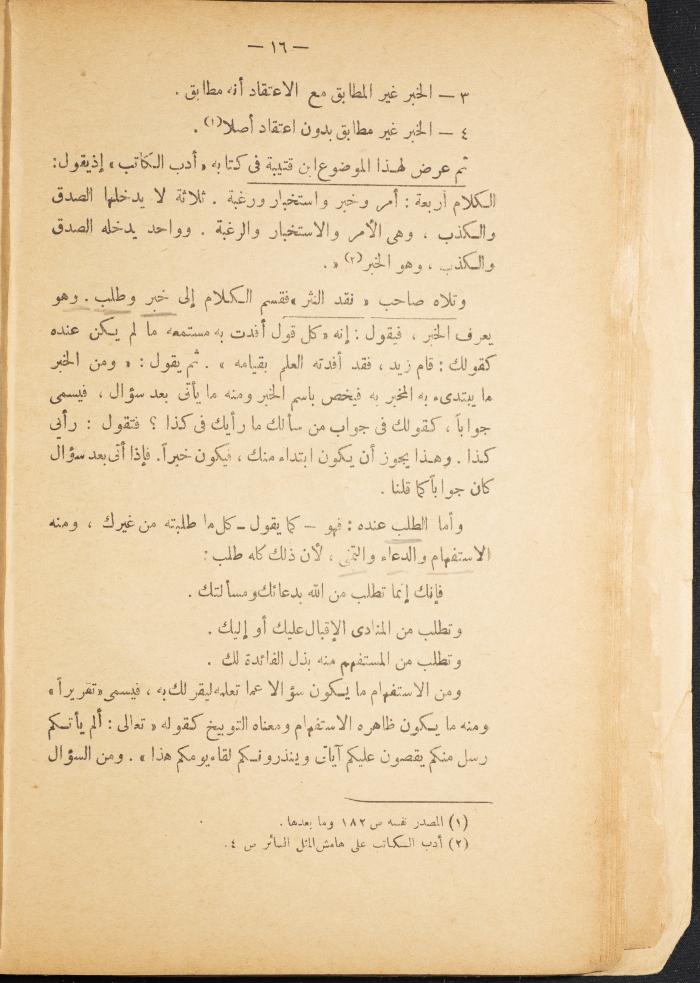 — ١٦ —
٣ — الخبر غير المطابق مع الاعتقاد أنه مطابق .
٤ — الخبر غير مطابق بدون اعتقاد أصلا(١) .
ثم عرض لهذا الموضوع ابن قتيبة فى كتابه « أدب الكاتب » إذ يقول :
الكلام أربعة : أمر وخبر واستخبار ورغبة . ثلاثة لا يدخلها الصدق
والكذب ، وهى الأمر والاستخبار والرغبة . وواحد يدخله الصدق
والكذب ، وهو الخبر(٢) » .
وتلاه صاحب « نقد النثر » فقسم الكلام إلى خبر وطلب . وهو
يعرف الخبر ، فيقول : إنه « كل قول أفدت به مستمعه ما لم يكن عنده
كقولك : قام زيد ، فقد أفدته العلم بقيامه » . ثم يقول : « ومن الخبر
ما يبتدىء به المخبر به فيخص باسم الخبر ومنه ما يأتى بعد سؤال ، فيسمى
جواباً ، كقولك فى جواب من سألك ما رأيك فى كذا ؟ فتقول : رأى
كذا . وهذا يجوز أن يكون ابتداء منك ، فيكون خبراً . فإذا أتى بعد سؤال
كان جواباً كما قلنا .
وأما الطلب عنده : فهو — كما يقول — كل ما طلبته من غيرك ، ومنه
الاستفهام والدعاء والتمنى ، لأن ذلك كله طلب :
فإنك إنما تطلب من الله بدعائك ومسألتك .
وتطلب من المنادى الإقبال عليك أو إليك .
وتطلب من المستفهم منه بذل الفائدة لك .
ومن الاستفهام ما يكون سؤالا عما تعلمه ليقر لك به ، فيسمى « تقريراً »
ومنه ما يكون ظاهره الاستفهام ومعناه التوبيخ كقوله « تعالى : ألم يأتكم
رسل منكم يقصون عليكم آياتى وينذرونكم لقاء يومكم هذا » . ومن السؤال
(١) المصدر نفسه ص ١٨٢ وما بعدها .
(٢) أدب الكاتب على هامش المثل السائر ص ٤ .